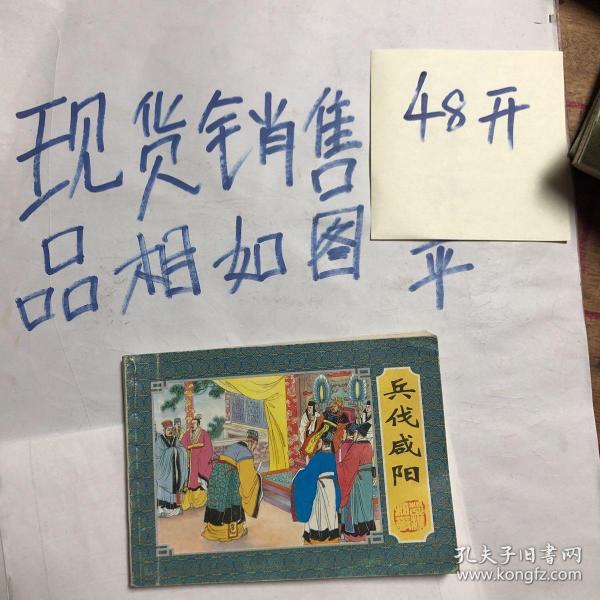 现货销售
48开
品相如图
平
兵伐咸阳
孔夫子旧书网
www.kongfz.com